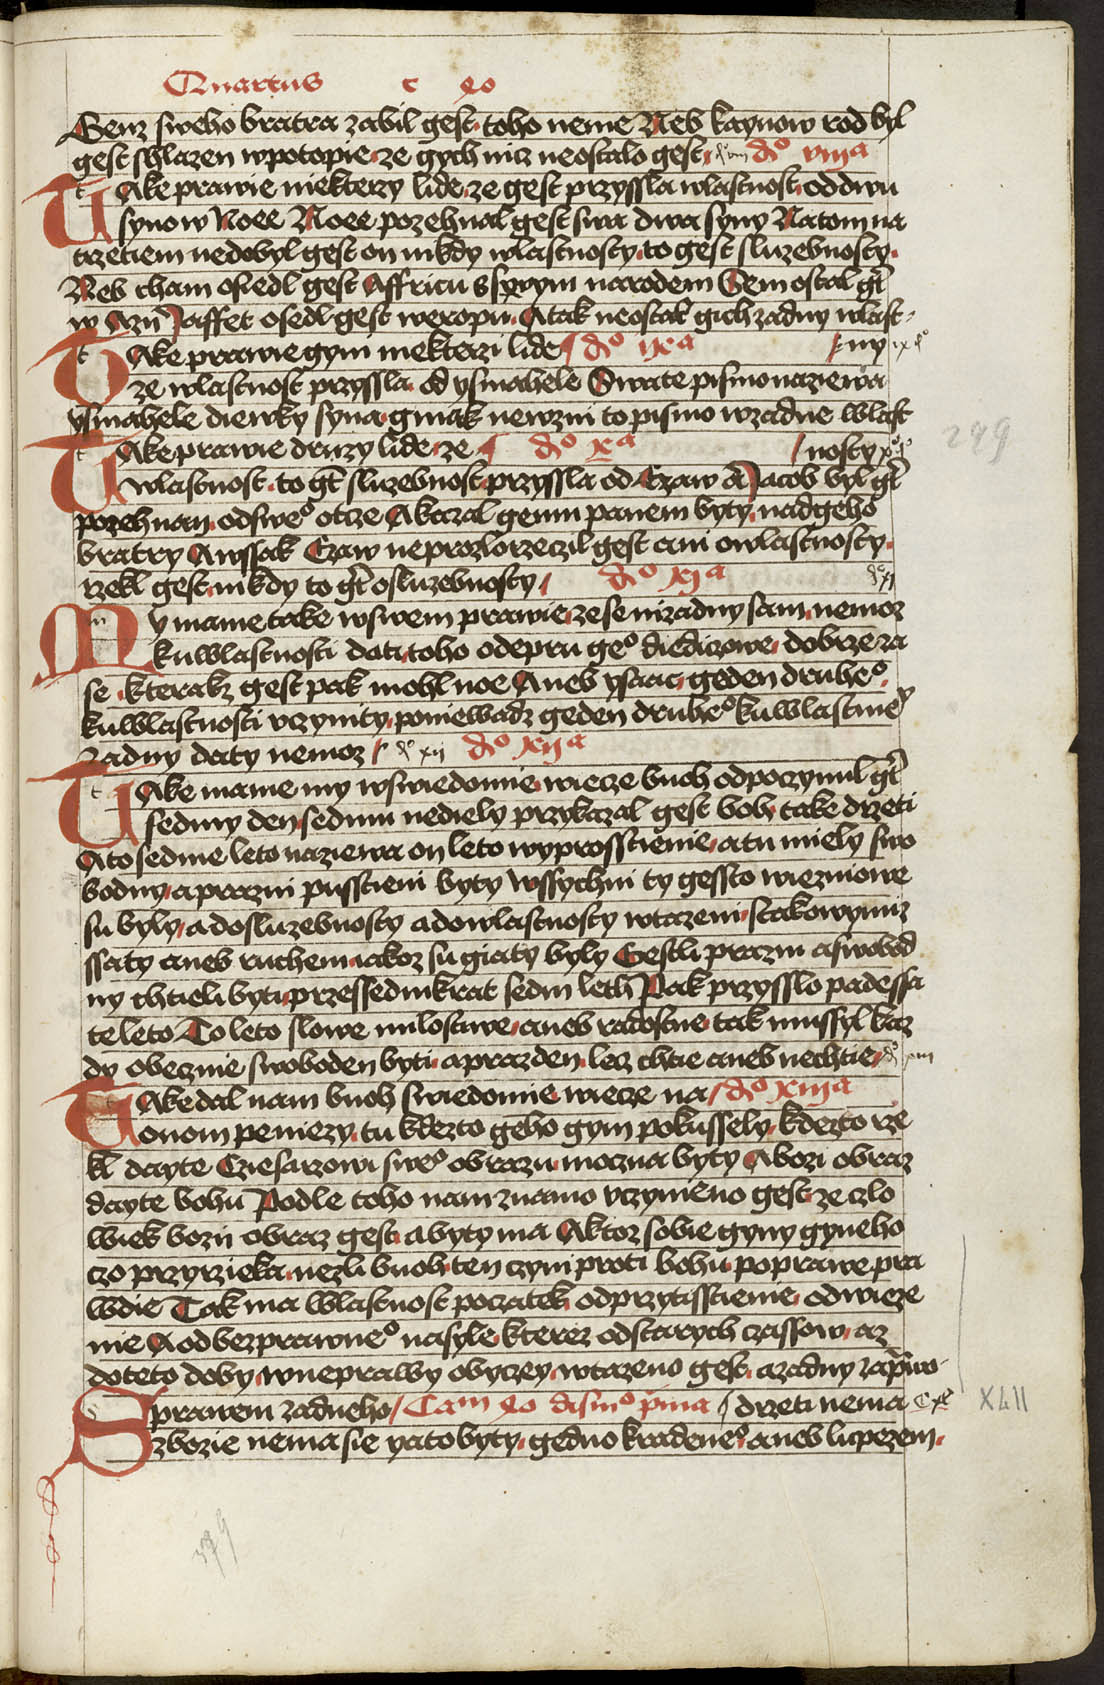 Quartus c xo
Genz sweho bratra zabil gest toho neme Neb kaynow rod byl
gest shlazen wpotopie ze gych nicz neostalo gest dº viijª
Take prawie niekterzy lide ze gest przyssla wlastnost od dwu
synow Noee Noee pozehnal gest swa dwa syny Natom na
trzetiem nedobyl gest on nikdy wlastnosty to gest sluzebnosty
Neb cham osiedl gest Affricu s swym narodem Sem ostal gt
w Azij Jaffet osedl gest weropu Atak neostal gich zadny wlast-
Take prawie gym niekterzi lide dº ixª ny ix dº
ze wlastnost przyssla od ysmahele Swate pismo naziewa
ysmahele diewky syna ginak newzni to pismo wzadne wlast
Take prawie druzy lide ze dº xª nosty x dº
wlastnost to gt sluzebnost przyssla od Ezaw a Jacob byl gt
pozehnan odsweº otcze Akazal gemu panem byty nadgeho
bratry Awssak Ezaw neprozlorzeczil gest ani owlastnosty
rzekl gest nikdy to gt osluzebnosty dº xjª dº xj
My mame take wswem prawie ze se nizadny sam nemoz
kuwlastnosti dati toho odepru geº diediczowe dobrze za
se kterakz gest pak mohl noe Aneb ysaac geden druheº
kuwlastnosti vczynity poniewadz geden druheº kuwlastnie
zadny daty nemoz dº xij dº xijª
Take mame my wswiedomie wiecze buoh odpoczynul gt
sedmy den sedmu nediely przykazal gest boh take drzeti
Ato sedme leto naziewa on leto wyprosstienie atu miely swo
bodny aprazni pusstieni byty wssychni ty gessto wiezniowe
su byly adosluzebnosty adowlastnosty wtazeni stakowymiz
ssaty aneb ruchem iakoz su giaty byly Gestli prazni aswobod
ny chtieli byti przessedmkrat sedm leth Pak przysslo padessa
te leto To leto slowe milostiwe aneb radostne tak mussyl kaz
dy obecznie swoboden byti aprazden lecz chtie aneb nechtie dº xiii
Take dal nam buoh swiedomie wiecze na dº xiijª
onom peniezy tu kdezto geho gym pokussely kdezto rze
kl dayte Cziesarzowi sweº obrazu moczna byty Abozi obraz
dayte bohu Podle toho nam znamo vczynieno gest ze czlo
wiek bozij obraz gest abyty ma Aktoz sobie gyny gyneho
czo przyrzieka nezli buoh ten czyni proti bohu poprawe pra
wdie Tak ma wlastnost poczatek odprzytisstienie odwieze
nie Aodbezprawneº nasyle kterez odstarych czassow az
doteto doby wneprawy obyczey wtazeno gest azadny zaprawo-
sprawem zadneho Cam xo distinº pima drzeti nema C xº XLII
Szbozie nema sie yato byty gedno kradeneº aneb lupezem